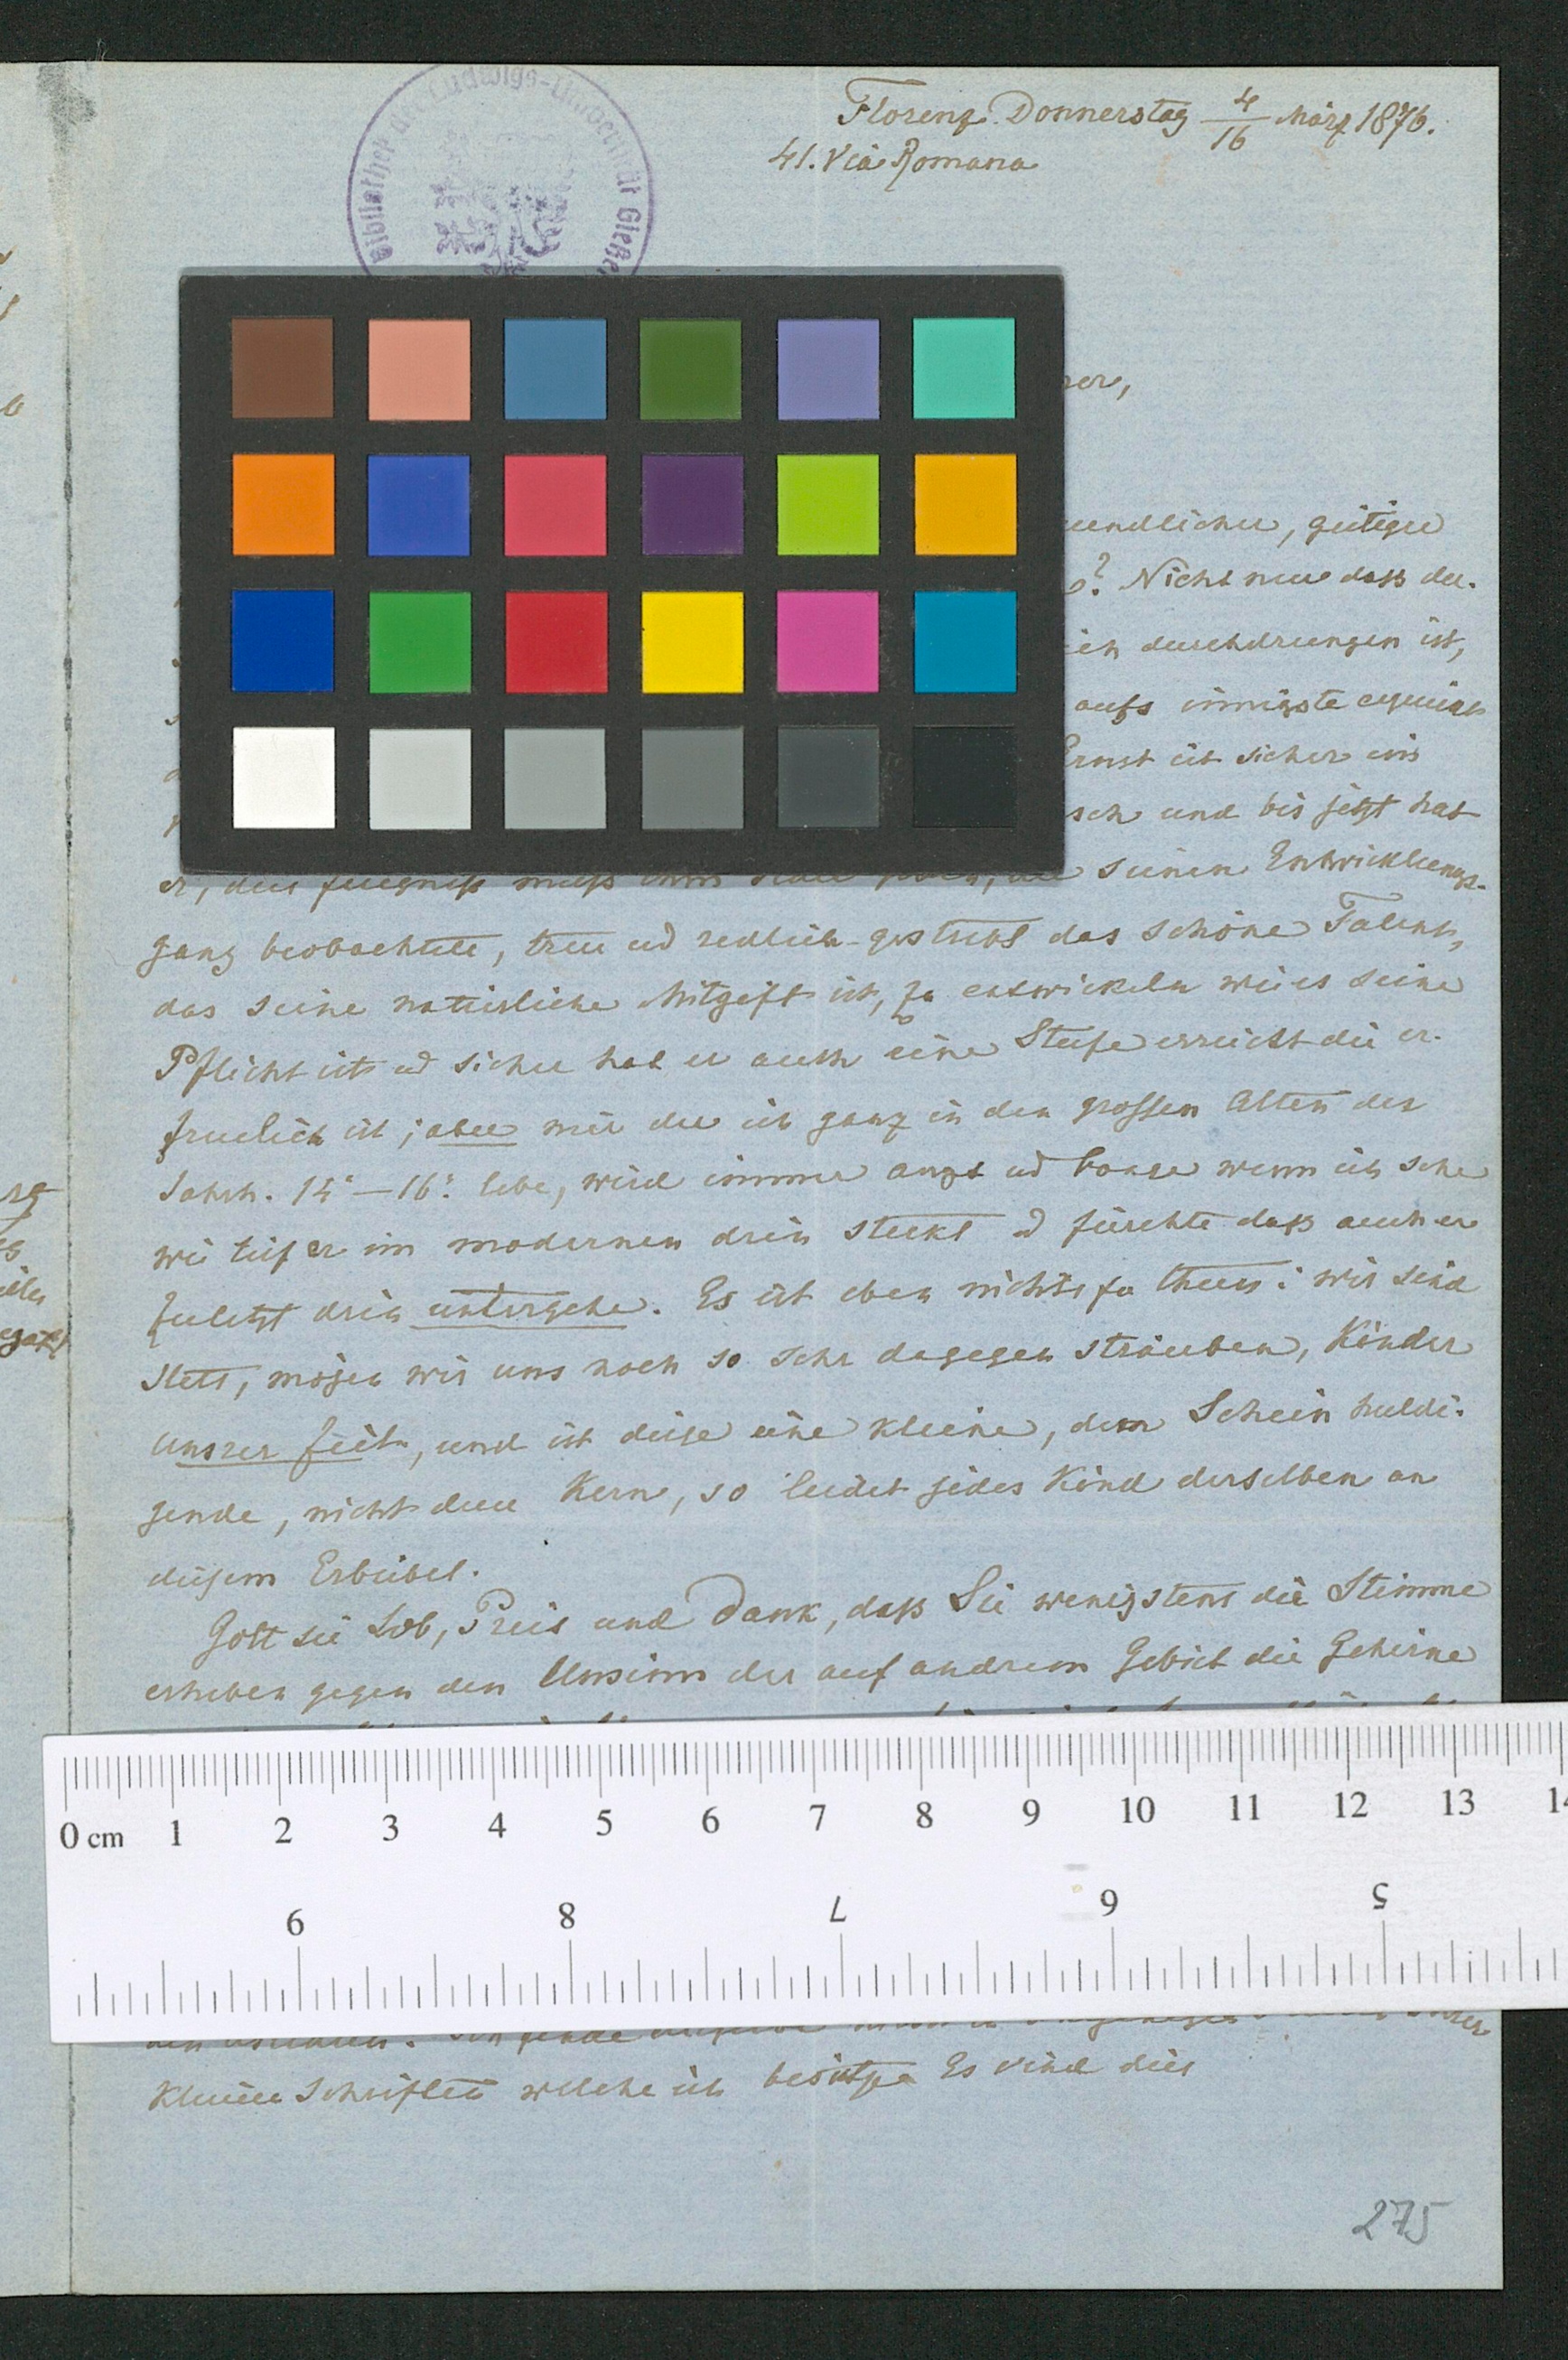 Bibliothek der Ludwigs-Universität Gieße
Florenz. Donnerstag 4/16 März 1876.
41. Via Romana
rer,
eundlicher, gütiger
? Nicht nur daß der
ich durchdrungen ist,
aufs innigste
Ernst ist sicher ein
sch und bis jetzt hat
er, dies Zeugniß muß ihm seinen Entwicklungs-
gang beobachtete, treu ud redlich gestrebt das schöne Talent,
das seine natürliche Mitgift ist, zu entwickeln wie es seine
Pflicht ist ud sicher hat er auch eine Stufe erreicht die er-
freulich ist; aber mir der ich ganz in den grossen Alten des
Jahrh. 14.–16. lebe, wird immer angst ud bange wenn ich sehe
wie tief er im modernen drin steckt ud fürchte daß auch er
zuletzt drin untergehe. Es ist eben nichts zu thun: wir sind
stets, mögen wir uns noch so sehr dagegen sträuben, Kinder
unsrer Zeit, und ist diese eine kleine, dem Schein huldi-
gende, nicht dem Kern, so leidet jedes Kind derselben an
diesem Erbübel.
Gott sei Lob, Preis und Dank, daß Sie wenigstens die Stimme
erheben gegen den Unsinn der auf andrem Gebiet die Gehirne
kleinen Schriften welche ich besitze Es sind dies
275
0 cm 1 2 3 4 5 6 7 8 9 10 11 12 13 14
9 8 7 6 5